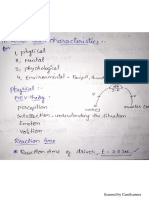 characteristics:
1. Physical
2. Mental
3. Psychological
4. Environmental -
Physical:
PIEV theory
Perception
Intellection - understanding the situation
Emotion
Volition
Reaction time
Reaction time of driver,
Scanned by CamScanner